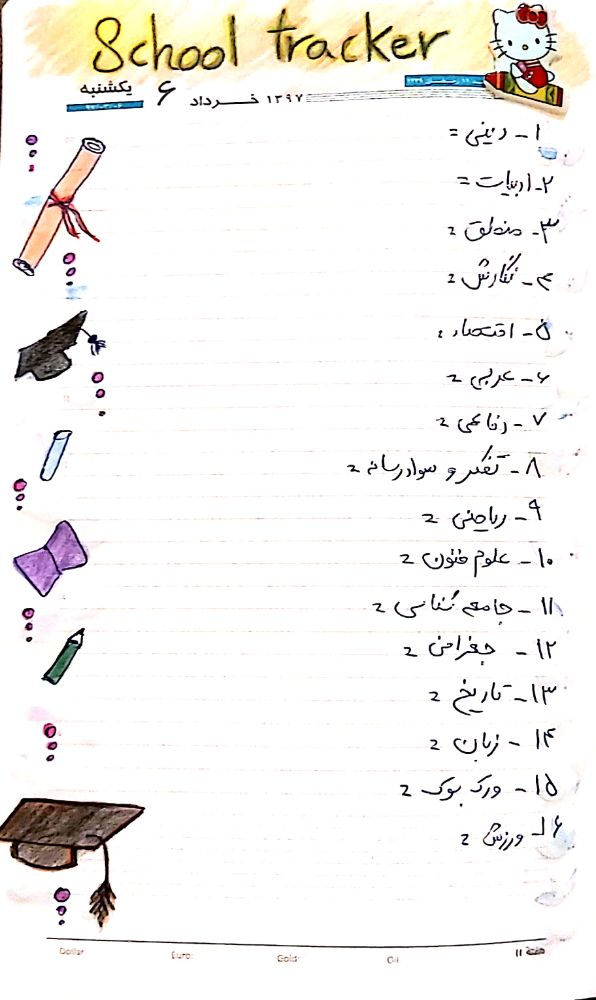 School tracker
یکشنبه ۶ خرداد ۱۳۹۷
۱- دینی =
۲- ادبیات =
۳- منطق =
۴- نگارش =
۵- اقتصاد =
۶- عربی =
۷- دفاعی =
۸- تفکر و سواد رسانه =
۹- ریاضی =
۱۰- علوم فنون =
۱۱- جامعه شناسی =
۱۲- جغرافی =
۱۳- تاریخ =
۱۴- زبان =
۱۵- ورک بوک =
۱۶- ورزش =
Dollar: Euro: Gold: Oil: هفته ۱۱